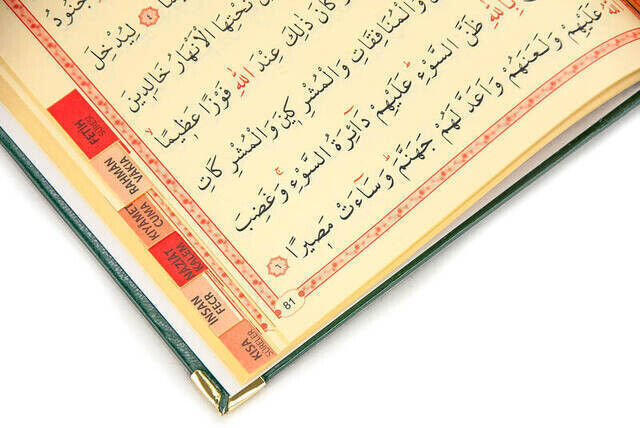 جُنُودُ
٤ لِيُدْخِلَ
تَحْتِهَا الْاَنْهَارُ خَالِدِينَ
كَانَ ذٰلِكَ عِنْدَ اللّٰهِ فَوْزًا عَظِيمًاۙ
وَالْمُنَافِقَاتِ وَالْمُشْرِكِينَ وَالْمُشْرِكَاتِ
بِاللّٰهِ ظَنَّ السَّوْءِۜ عَلَيْهِمْ دَٓائِرَةُ السَّوْءِۚ وَغَضِبَ
عَلَيْهِمْ وَلَعَنَهُمْ وَاَعَدَّ لَهُمْ جَهَنَّمَۜ وَسَٓاءَتْ مَصِيرًا ٦
81
FETİH
SURESİ
RAHMAN
VAKIA
KIYAMET
CUMA
NAZİAT
KALEM
İNSAN
FECR
KISA
SURELER